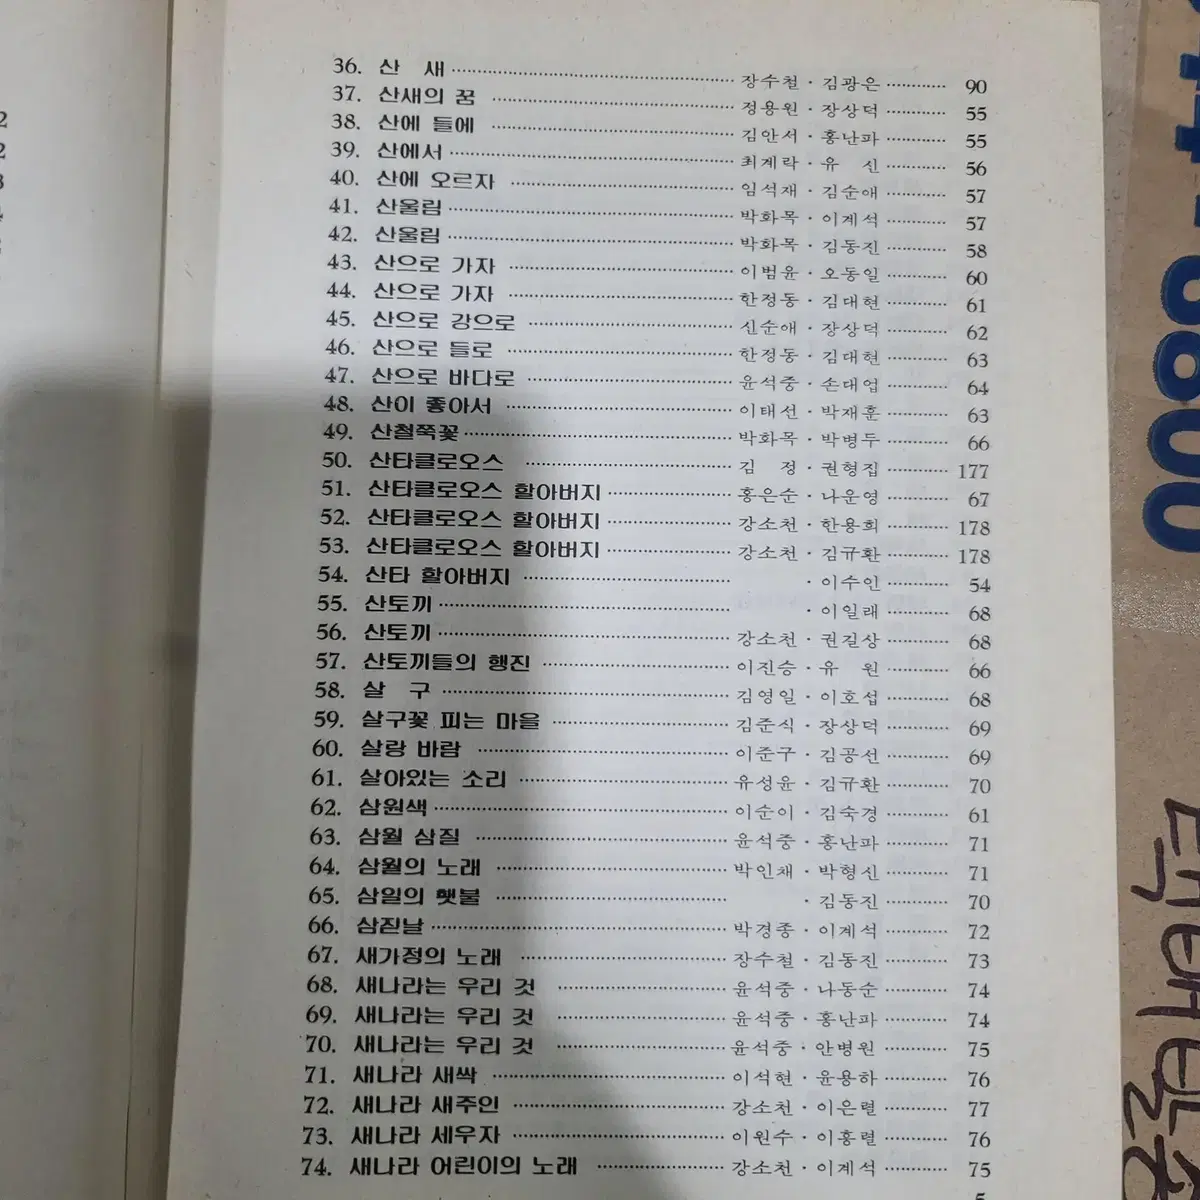 36. 산 새 ⋯⋯ 장수철 · 김광은 ⋯⋯ 90
37. 산새의 꿈 ⋯⋯ 정용원 · 장상덕 ⋯⋯ 55
38. 산에 들에 ⋯⋯ 김안서 · 홍난파 ⋯⋯ 55
39. 산에서 ⋯⋯ 최계락 · 유 신 ⋯⋯ 56
40. 산에 오르자 ⋯⋯ 임석재 · 김순애 ⋯⋯ 57
41. 산울림 ⋯⋯ 박화목 · 이계석 ⋯⋯ 57
42. 산울림 ⋯⋯ 박화목 · 김동진 ⋯⋯ 58
43. 산으로 가자 ⋯⋯ 이범윤 · 오동일 ⋯⋯ 60
44. 산으로 가자 ⋯⋯ 한정동 · 김대현 ⋯⋯ 61
45. 산으로 강으로 ⋯⋯ 신순애 · 장상덕 ⋯⋯ 62
46. 산으로 들로 ⋯⋯ 한정동 · 김대현 ⋯⋯ 63
47. 산으로 바다로 ⋯⋯ 윤석중 · 손대업 ⋯⋯ 64
48. 산이 좋아서 ⋯⋯ 이태선 · 박재훈 ⋯⋯ 63
49. 산철쭉꽃 ⋯⋯ 박화목 · 박병두 ⋯⋯ 66
50. 산타클로오스 ⋯⋯ 김 정 · 권형집 ⋯⋯ 177
51. 산타클로오스 할아버지 ⋯⋯ 홍은순 · 나운영 ⋯⋯ 67
52. 산타클로오스 할아버지 ⋯⋯ 강소천 · 한용희 ⋯⋯ 178
53. 산타클로오스 할아버지 ⋯⋯ 강소천 · 김규환 ⋯⋯ 178
54. 산타 할아버지 ⋯⋯ · 이수인 ⋯⋯ 54
55. 산토끼 ⋯⋯ · 이일래 ⋯⋯ 68
56. 산토끼 ⋯⋯ 강소천 · 권길상 ⋯⋯ 68
57. 산토끼들의 행진 ⋯⋯ 이진승 · 유 원 ⋯⋯ 66
58. 살 구 ⋯⋯ 김영일 · 이호섭 ⋯⋯ 68
59. 살구꽃 피는 마을 ⋯⋯ 김준식 · 장상덕 ⋯⋯ 69
60. 살랑 바람 ⋯⋯ 이준구 · 김공선 ⋯⋯ 69
61. 살아있는 소리 ⋯⋯ 유성윤 · 김규환 ⋯⋯ 70
62. 삼원색 ⋯⋯ 이순이 · 김숙경 ⋯⋯ 61
63. 삼월 삼질 ⋯⋯ 윤석중 · 홍난파 ⋯⋯ 71
64. 삼월의 노래 ⋯⋯ 박인채 · 박형신 ⋯⋯ 71
65. 삼일의 횃불 ⋯⋯ · 김동진 ⋯⋯ 70
66. 삼짇날 ⋯⋯ 박경종 · 이계석 ⋯⋯ 72
67. 새가정의 노래 ⋯⋯ 장수철 · 김동진 ⋯⋯ 73
68. 새나라는 우리 것 ⋯⋯ 윤석중 · 나동순 ⋯⋯ 74
69. 새나라는 우리 것 ⋯⋯ 윤석중 · 홍난파 ⋯⋯ 74
70. 새나라는 우리 것 ⋯⋯ 윤석중 · 안병원 ⋯⋯ 75
71. 새나라 새싹 ⋯⋯ 이석현 · 윤용하 ⋯⋯ 76
72. 새나라 새주인 ⋯⋯ 강소천 · 이은렬 ⋯⋯ 77
73. 새나라 세우자 ⋯⋯ 이원수 · 이흥렬 ⋯⋯ 76
74. 새나라 어린이의 노래 ⋯⋯ 강소천 · 이계석 ⋯⋯ 75